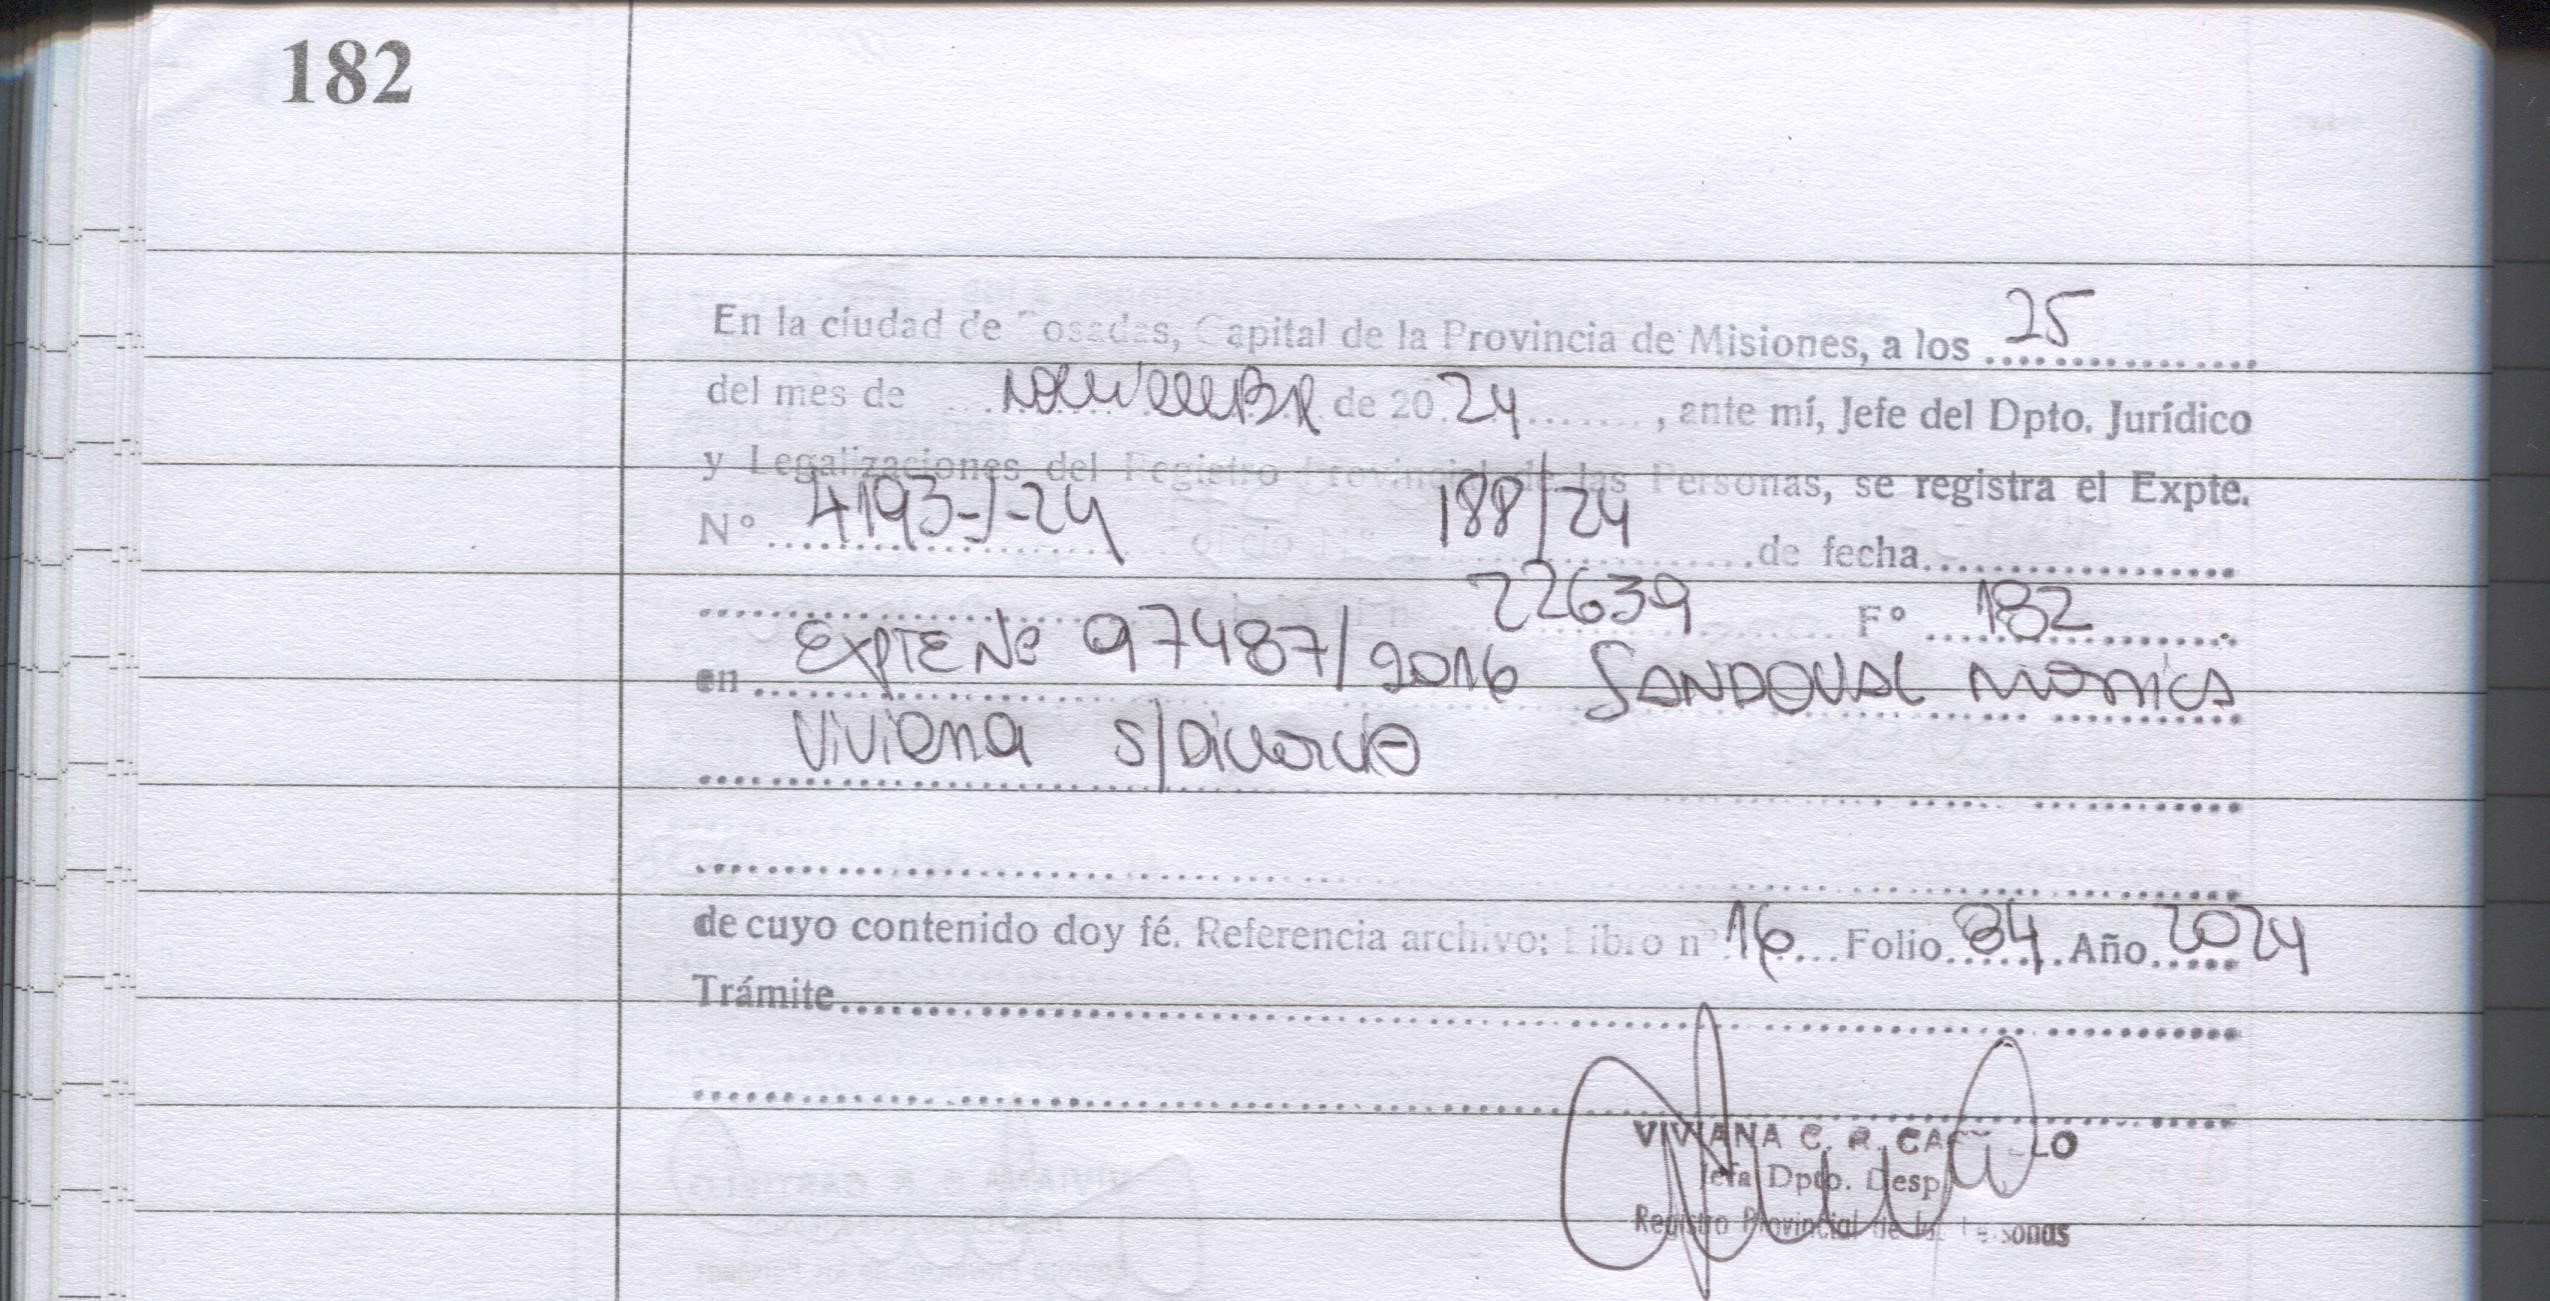 182
En la ciudad de Posadas, Capital de la Provincia de Misiones, a los 25
del mes de noviembre de 2024, ante mí, Jefe del Dpto. Jurídico
y Legalizaciones del Registro Provincial de las Personas, se registra el Expte.
Nº 4193-J-24 oficio Nº 188/24 de fecha
22639 Fº 182
en EXPTE Nº 97487/2016 SANDOVAL MONICA
Viviana s/Divorcio
de cuyo contenido doy fé. Referencia archivo: Libro nº 16 Folio 84 Año 2024
Trámite
VIVIANA C. R.
Jefa Dpto. Desp
Registro Provincial de las Personas